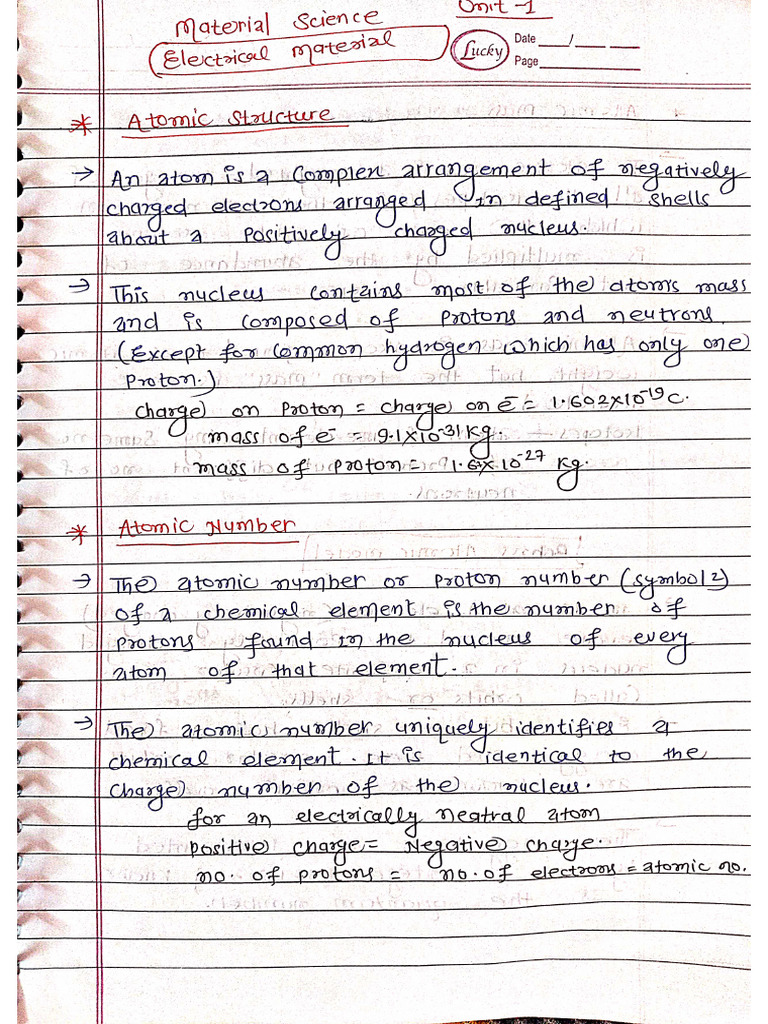 Unit-1
Material Science
Electrical Material
Lucky
Date ___/___ ___
Page
* Atomic Structure
→ An atom is a Complex arrangement of negatively
charged electrons arranged in defined shells
about a positively charged nucleus.
→ This nucleus contains most of the atoms mass
and is composed of Protons and neutrons
(Except for common hydrogen which has only one)
Proton.)
charge on Proton = charge on e⁻ = 1.602×10⁻¹⁹ C.
mass of e⁻ = 9.1×10⁻³¹ Kg.
mass of Proton = 1.6×10⁻²⁷ Kg.
* Atomic Number
→ The atomic number or Proton number (symbol z)
of a chemical element is the number of
protons found in the nucleus of every
atom of that element.
→ The atomic number uniquely identifies a
chemical element. It is identical to the
charge number of the nucleus.
for an electrically neatral atom
positive charge = Negative charge.
no. of protons = no. of electrons = atomic no.